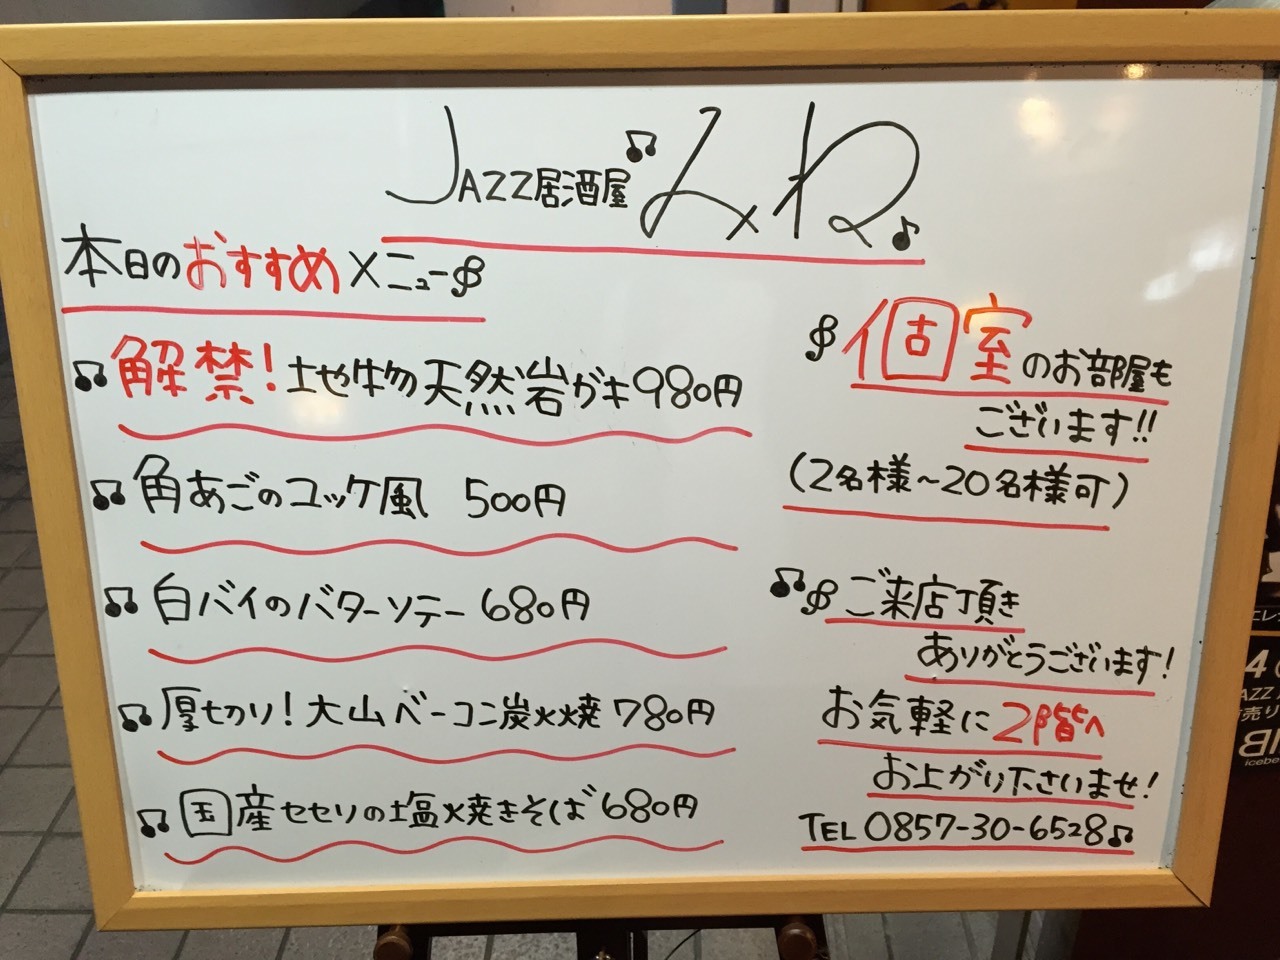 JAZZ居酒屋 みね
本日のおすすめメニュー
解禁！地物天然岩ガキ980円
角あごのユッケ風 500円
白バイのバターソテー 680円
厚切り！大山ベーコン炭火焼 780円
国産セセリの塩焼きそば 680円
個室のお部屋も
ございます!!
(2名様～20名様可)
ご来店頂き
ありがとうございます！
お気軽に2階へ
お上がり下さいませ！
TEL 0857-30-6528